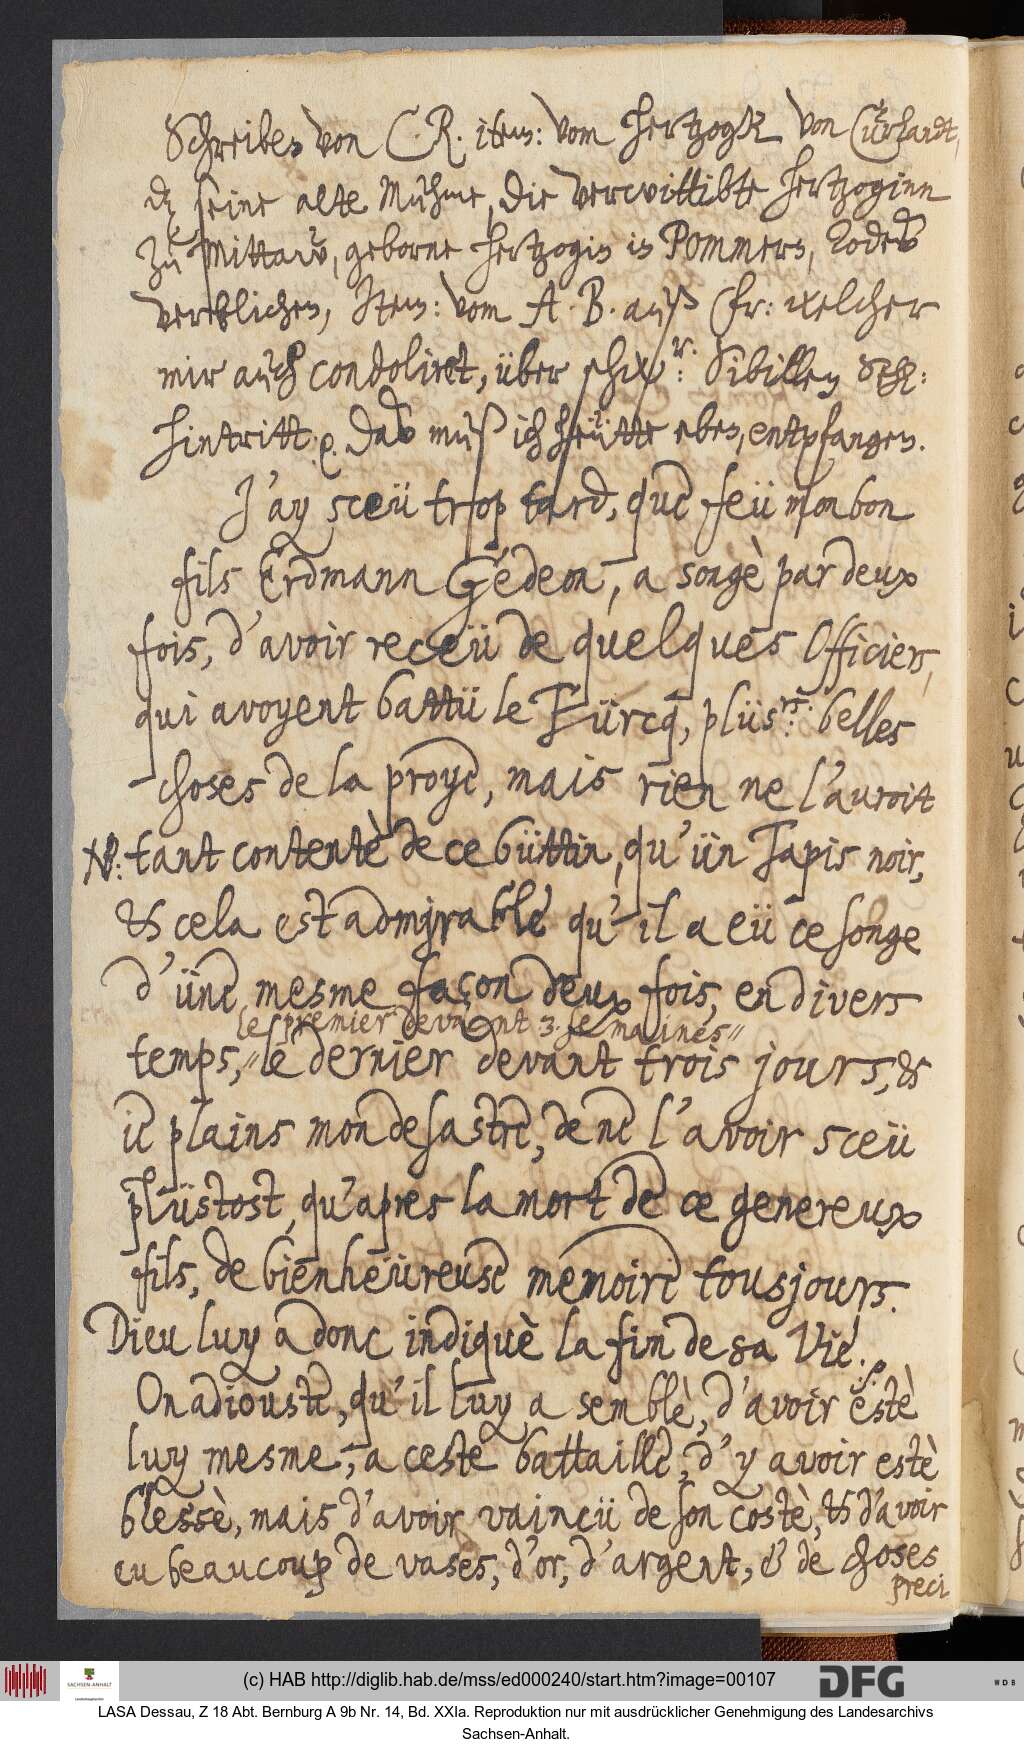 Schreiben von C. R. item: vom hertzogk von Cuhrlandt,
dz seine alte Muhme, die verwittibte hertzoginn
zu Mittaw, geborne hertzogin in Pommern, Todes
verblichen, Item: vom A. B. auß welcher
mir auch condoliret, über Sibillen Sehl:
hintritt. Das muß ich heütte eben, entpfangen.
J'ay sceü trop tard, que feü mon bon
fils Erdmann Gédeon, a songè par deux
fois, d'avoir receü de quelques Officiers,
qui avoyent battü le Türcq, plüsrs: belles
choses de la proye, mais rien ne l'auroit
NB: tant contentè de ce büttin, qu'ün Tapis noir,
& cela est admirable qu'il a eü ce songe
d'üne mesme façon deux fois, en divers
le premier devant 3. semaines
temps, le dernier devant trois jours, &
ie plains mon desastre, de ne l'avoir sceü
plüstost, qu'apres la mort de ce genereux
fils, de bienheüreuse memoire tousjours.
Dieu luy a donc indiquè la fin de sa vie!
On adiouste, qu'il luy a semblè, d'avoir estè
luy mesme, a ceste battaille, d'y avoir estè
blessè, mais d'avoir vaincü de son costè, & d'avoir
eu beaucoup de vases, d'or, d'argent, & de choses
preci
(c) HAB http://diglib.hab.de/mss/ed000240/start.htm?image=00107
SACHSEN-ANHALT
DFG
WDB
LASA Dessau, Z 18 Abt. Bernburg A 9b Nr. 14, Bd. XXIa. Reproduktion nur mit ausdrücklicher Genehmigung des Landesarchivs
Sachsen-Anhalt.